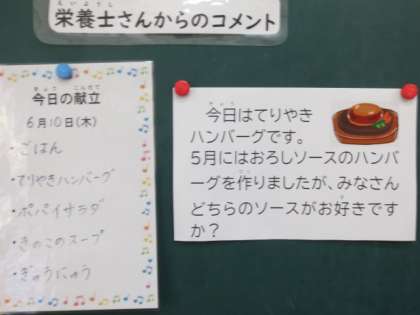 えいようし
栄養士さんからのコメント
きょう こんだて
今日の献立
6月10日(木)
・ごはん
・てりやきハンバーグ
・ポパイサラダ
・きのこのスープ
・ぎゅうにゅう
きょう
今日はてりやき
ハンバーグです。
5月にはおろしソースのハンバ
つく
ーグを作りましたが、みなさん
す
どちらのソースがお好きです
か?